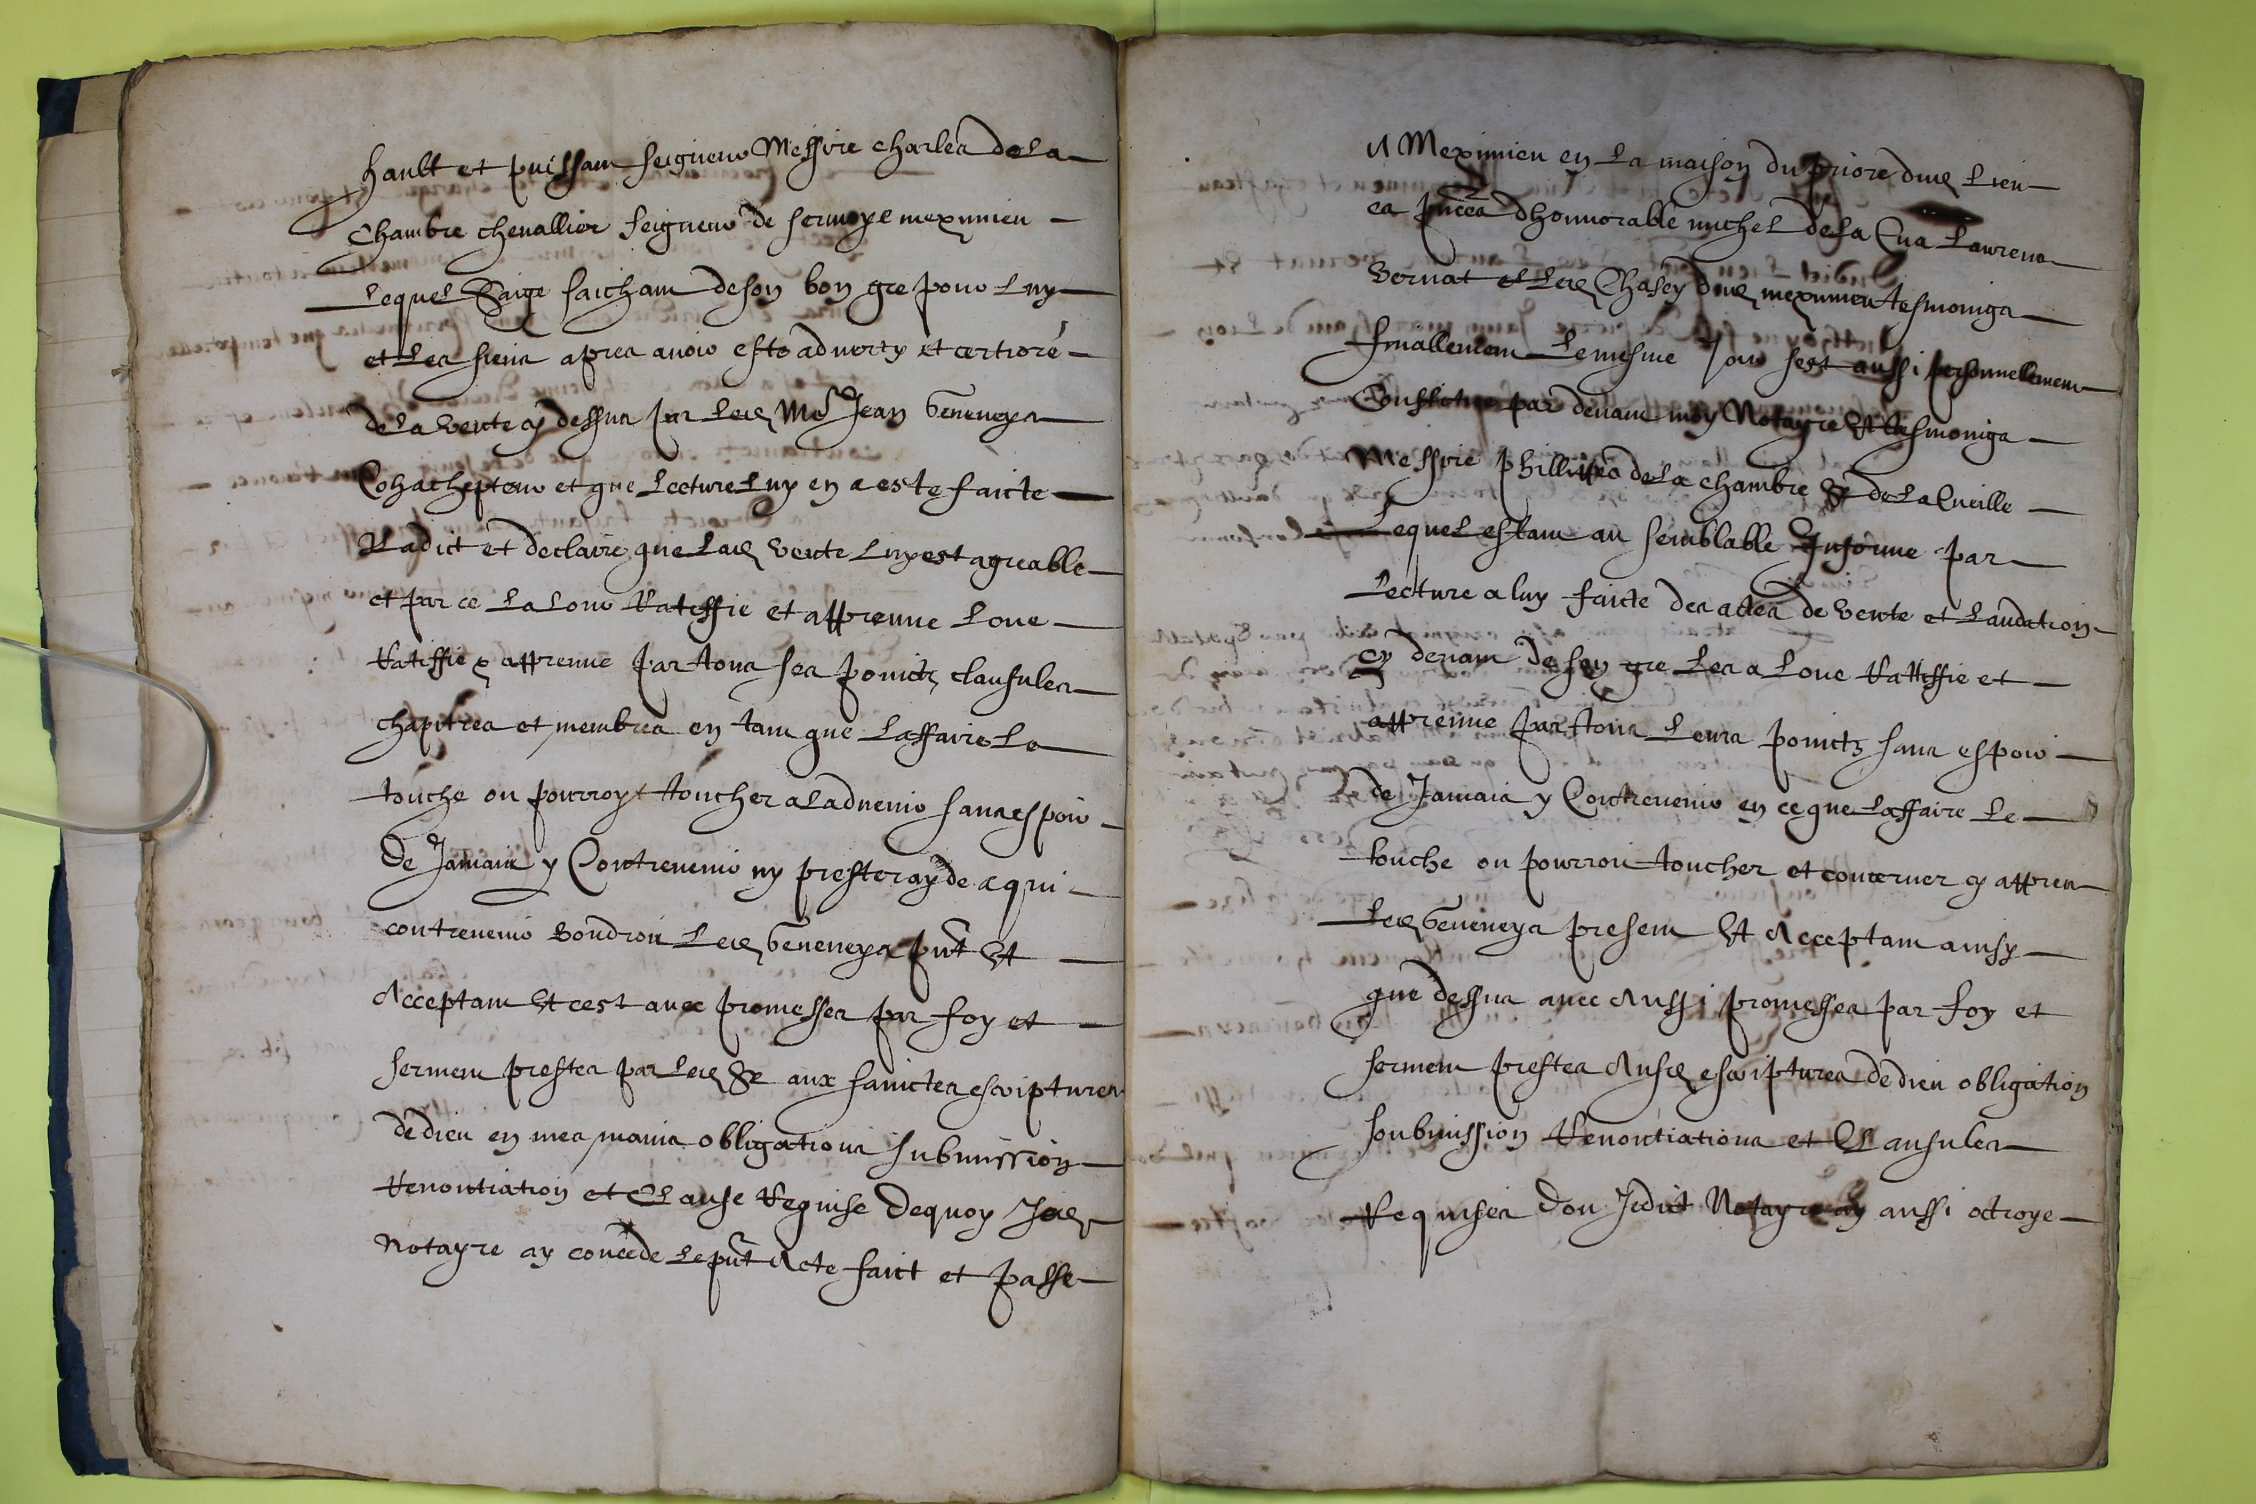 hault et puissant seigneur Messire charles de La
Chambre chevallier seigneur de sermoye meximieu
Lequel saige saichant de son bon gre pour Luy
et Les siens apres avoir este adverty et certioré
de La vente cy dessus par Led Me Jean Geneneys
Cohachepteur et que Lecture Luy en a este faicte
Ra dict et declaire que Lad vente Luy est agreable
et par ce La Loue Ratiffie et appreuve Loue
Ratiffie et appreuve par tous ses poinctz clausules
chapitres et membres en tant que Laffaire Le
touche ou pourroyt toucher a Ladvenir sans espoir
de Jamais y Contrevenir ny prester ayde a qui
contrevenir voudroit Led Geneneys pnt Et
Acceptant Et cest avec promesses par foy et
serment prestes par Led Sr aux sainctes escriptures
de dieu en mes mains obligations submission
Renontiation et Clause Requise dequoy Jed
Notayre ay concede Le pnt Acte faict et passe
A Meximieu en La maison du priore dud Lieu
es pnces dhonnorable michel de La Cua Laurens
Vernat et Led Chasey dud meximieu tesmoings
finallement Le mesme Jour sest aussi personnellement
Constitue par devant moy Notayre Et tesmoings
Messire phillibes de La chambre Sr de La Cueille
Lequel estant au semblable Informe par
Lecture a luy faicte des actes de vente et Laudation
cy devant de son gre Les a Loue Rattiffie et
appreuve par tous Leurs poinctz sans espoir
de Jamais y Contrevenir en ce que Laffaire Le
touche ou pourroit toucher et concerner cy appres
Led Geneneys present Et Acceptant ainsy
que dessus avec Aussi promesses par foy et
serment prestes Ausd escriptures de dieu obligation
soubmission Renontiations et Clausules
Requises dou Jedict Notayre ay aussi octroye